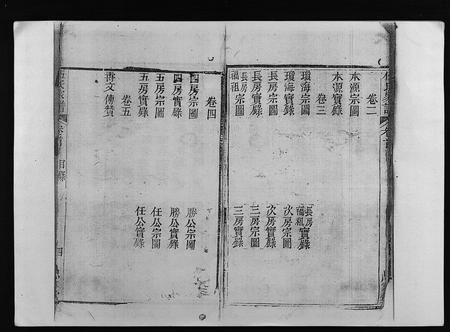 卷二
水源宗圖
水源實錄
卷三
瓊海宗圖
瓊海實錄
長房宗圖
長房實錄
福祖宗圖
長房福祖實錄
次房宗圖
次房實錄
三房宗圖
三房實錄
卷四
四房宗圖
四房實錄
五房宗圖
五房實錄
卷五
勝公宗圖
勝公實錄
任公宗圖
任公實錄